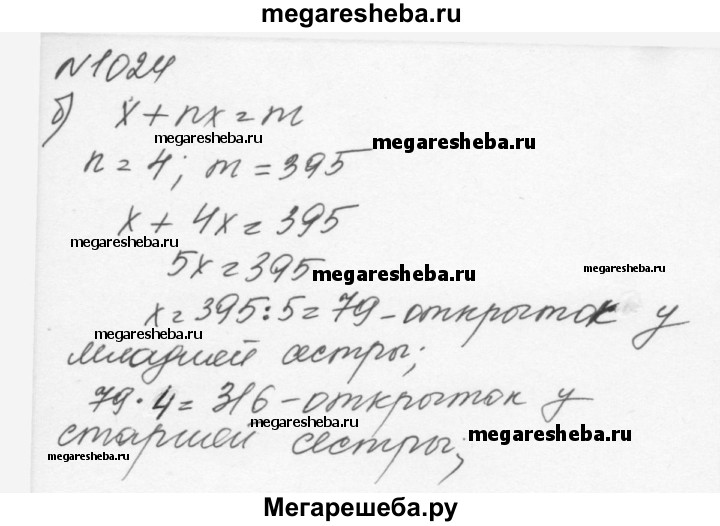 megaresheba.ru
№1024
б) x+nx=m
megaresheba.ru
megaresheba.ru
n=4; m=395
x+4x=395
megaresheba.ru
5x=395
megaresheba.ru
megaresheba.ru
x=395:5=79-открыток у
megaresheba.ru
младшей сестры;
79·4=316-открыток у
megaresheba.ru
старшей сестры;
megaresheba.ru
megaresheba.ru
Мегарешеба.ру